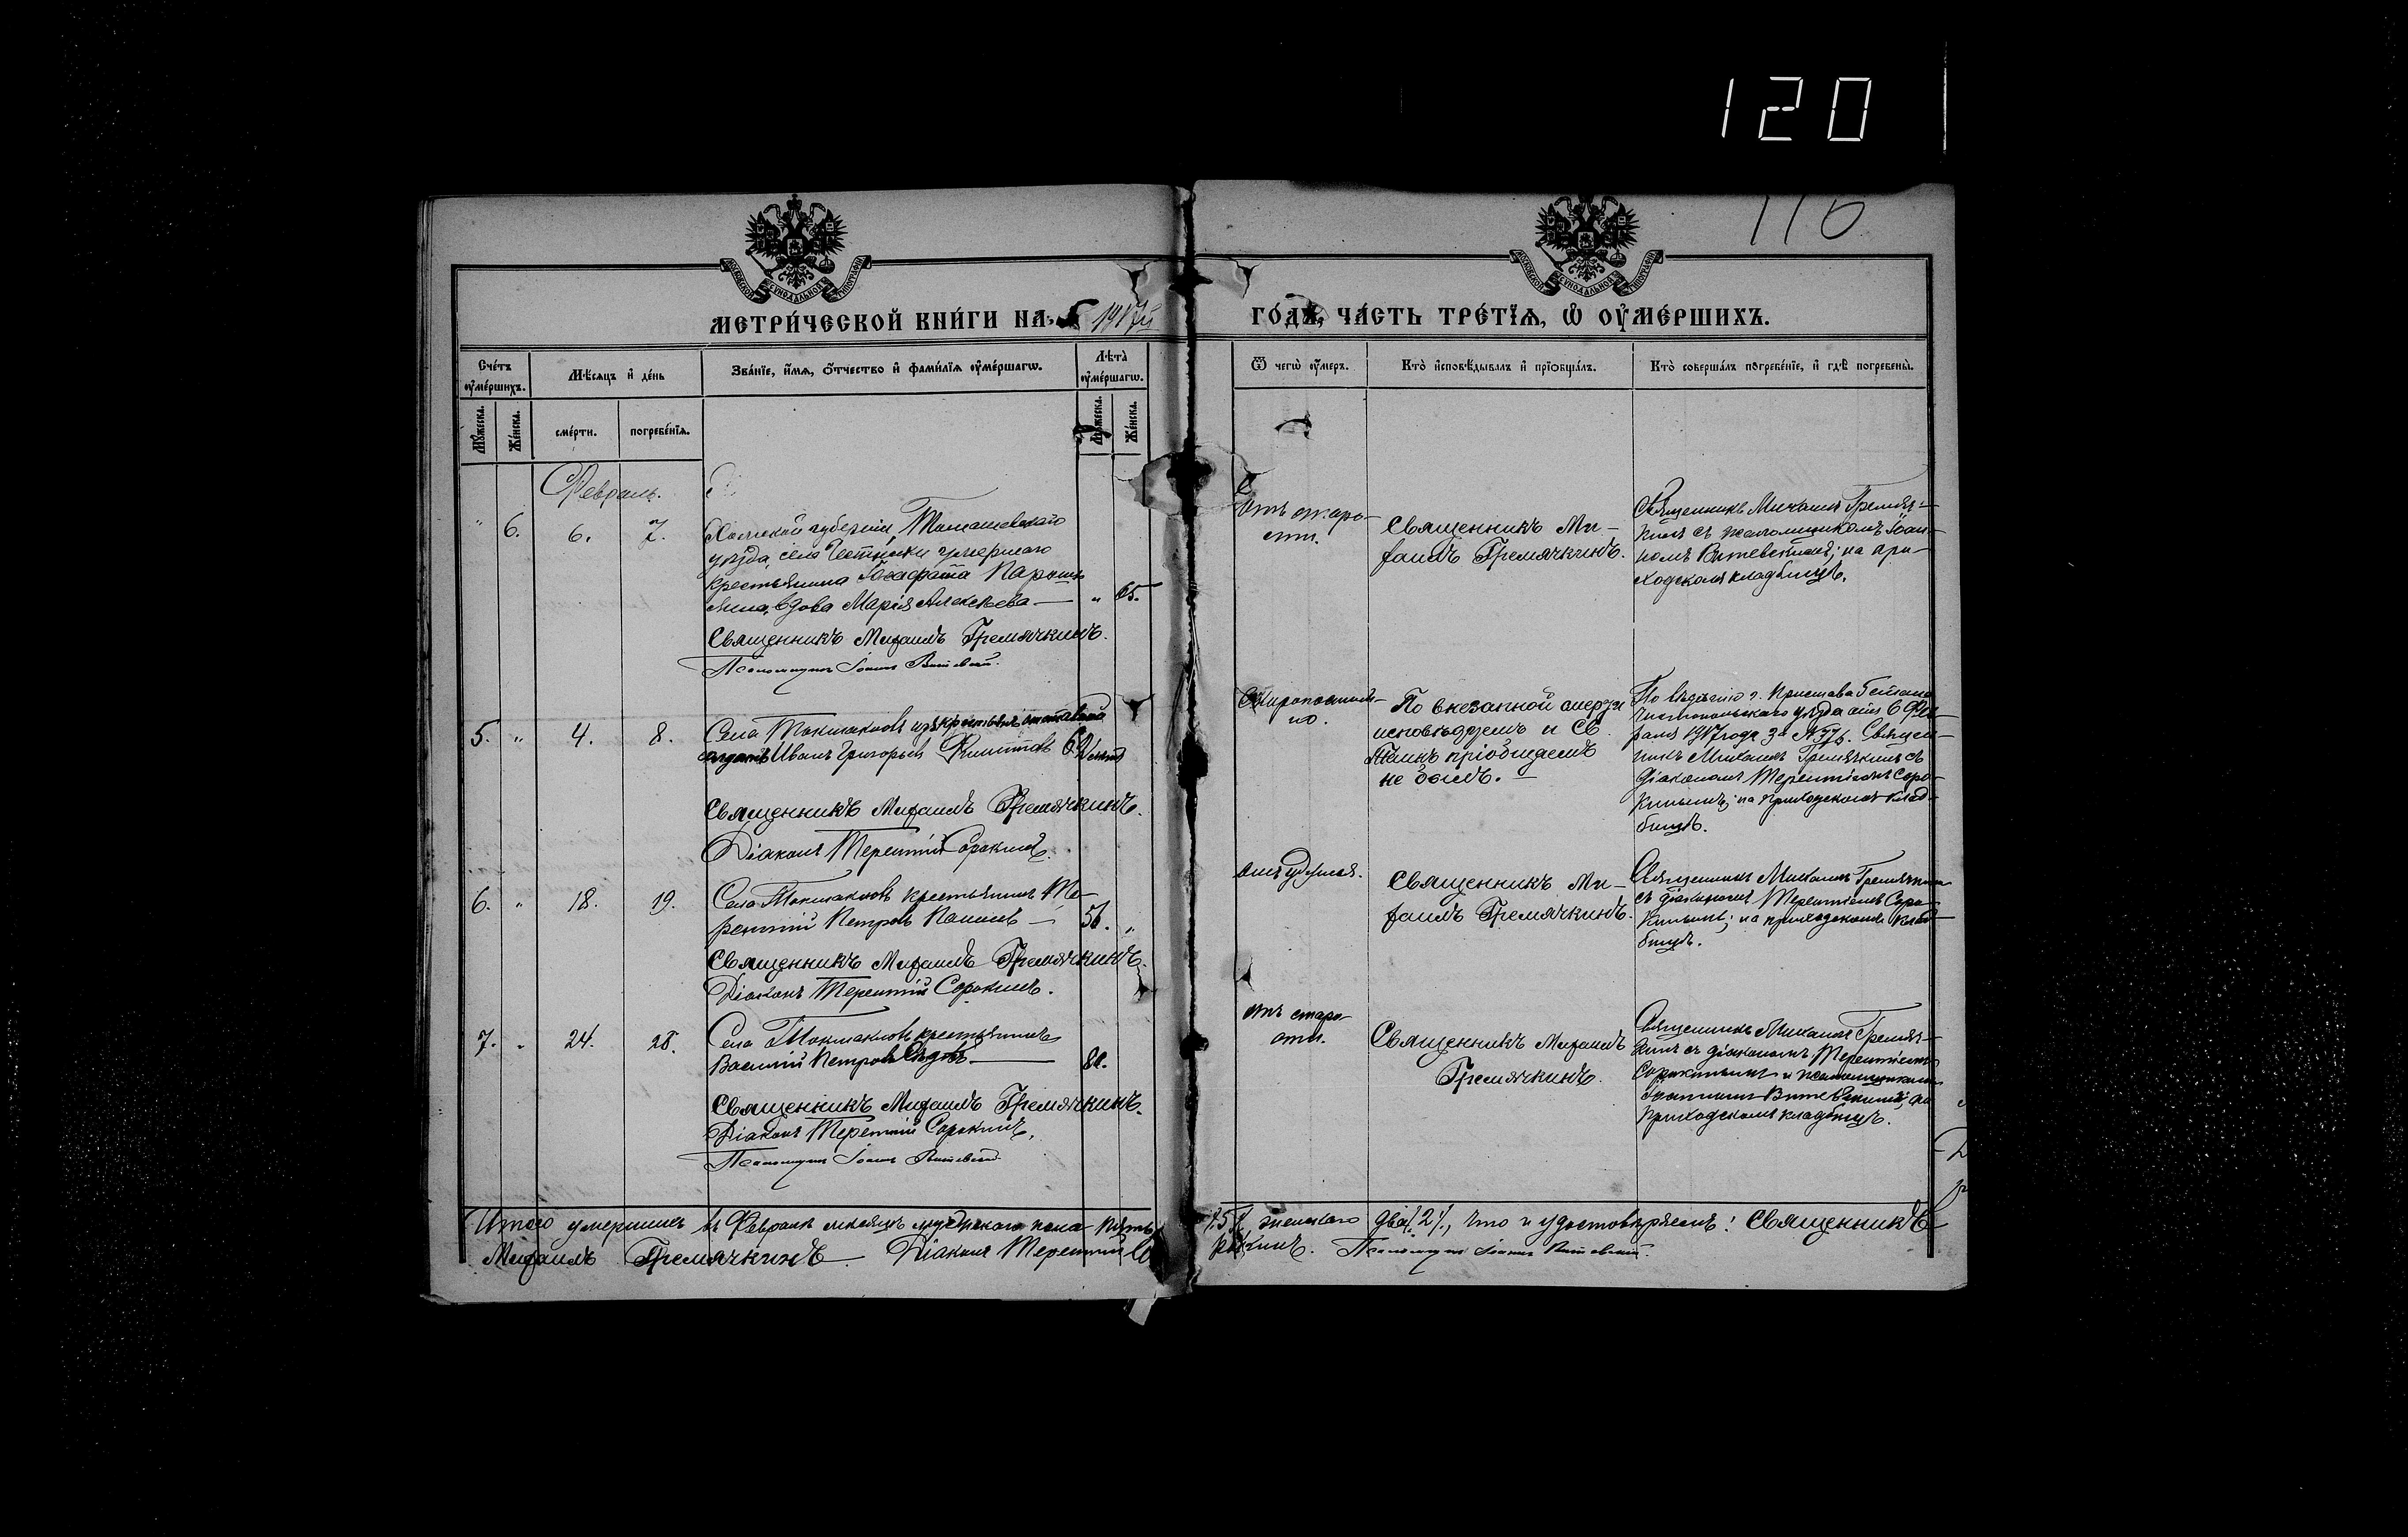 120
116
МОСКОВСКОЙ СУНОДАЛЬНОЙ ТИПОГРАФІИ
МОСКОВСКОЙ СУНОДАЛЬНОЙ ТИПОГРАФІИ
МЕТРИ́ЧЕСКОЙ КНИ́ГИ НА 1917й
ГО́ДЪ, ЧА́СТЬ ТРЕ́ТІѦ, Ѡ҆ ОУ҆МЕ́РШИХЪ.
Сче́тъ оу҆ме́ршихъ.
Мѣ́сѧцъ и҆ де́нь
Зва́нїе, и҆́мѧ, ѻ҆́тчество и҆ фами́лїѧ оу҆ме́ршагѡ.
Лѣ́та̀ оу҆ме́ршагѡ.
Ѿ чегѡ̀ оу҆́меръ.
Кто̀ и҆сповѣ́дывалъ и҆ прїѡбща́лъ.
Кто̀ соверша́лъ погребе́нїе, и҆ гдѣ̀ погребены̀.
Мꙋ́жеска.
Же́нска.
сме́рти.
погребе́нїѧ.
Мꙋ́жеска.
Же́нска.
Февраль.
" 6. 6. 7.
Холмской губерніи, Томашевскаго
уѣзда, села умершаго
крестьянина
вдова Марія Алексѣева — " 65.
Священникъ Михаилъ Гремячкинъ.
Псаломщикъ Іоаннъ Витевскій.
Отъ старо-
сти.
Священникъ Ми-
хаилъ Гремячкинъ.
Священникъ Михаилъ Гремяч-
кинъ съ псаломщикомъ Іоан-
номъ Витевскимъ; на при-
ходскомъ кладбищѣ.
5. " 4. 8.
Села Токмаковъ изъ крестьянъ отставной
солдатъ Иванъ Григорьевъ Филиповъ
Священникъ Михаилъ Гремячкинъ.
Діаконъ Терентій Сорокинъ.
Скоропостиж-
но.
По внезапной смерти
исповѣдуемъ и Св.
Таинъ пріобщаемъ
не былъ. —
По вѣдѣнію г. Пристава 5 стана
Чистопольскаго уѣзда отъ 6 Фев-
раля 1917 года за № Священ-
никъ Михаилъ Гремячкинъ съ
діакономъ Терентіемъ Соро-
кинымъ; на приходскомъ клад-
бищѣ.
6. " 18. 19.
Села Токмаковъ крестьянинъ Те-
рентій Петровъ — 56. "
Священникъ Михаилъ Гремячкинъ.
Діаконъ Терентій Сорокинъ.
Священникъ Ми-
хаилъ Гремячкинъ.
Священникъ Михаилъ Гремячкинъ
съ діакономъ Терентіемъ Соро-
кинымъ; на приходскомъ клад-
бищѣ.
7. " 24. 28.
Села Токмаковъ крестьянинъ
Василій Петровъ
Священникъ Михаилъ Гремячкинъ.
Діаконъ Терентій Сорокинъ.
Псаломщикъ Іоаннъ Витевскій.
отъ старо-
сти.
Священникъ Михаилъ
Гремячкинъ.
Священникъ Михаилъ Гремяч-
кинъ съ діакономъ Терентіемъ
Сорокинымъ и псаломщикомъ
Іоанномъ Витевскимъ; на
приходскомъ кладбищѣ.
Итого умершихъ въ Февралѣ мѣсяцѣ мужескаго пола пять /5/, женскаго два /2/, что и удостовѣряемъ: Священникъ
Михаилъ Гремячкинъ. Діаконъ Терентій Сорокинъ. Псаломщикъ Іоаннъ Витевскій.